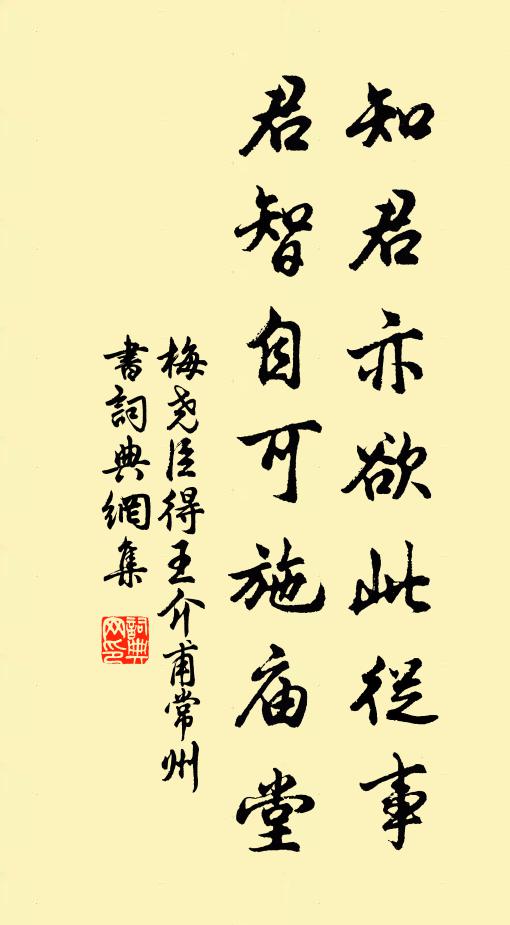 知君亦欲此從事
君智自可施庙堂
梅尧臣得王介甫常州
書詞典網集
詞典网印